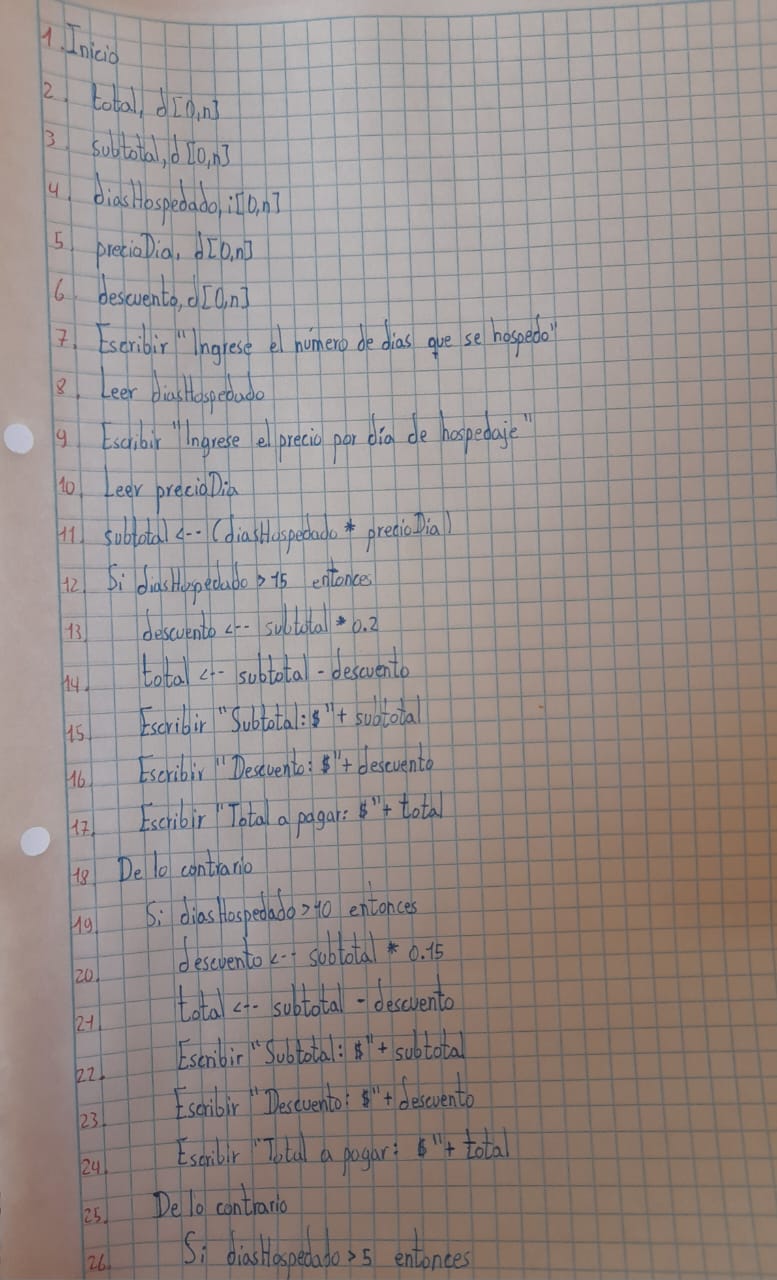 1. Inicio
2. total, d[0,n]
3. subtotal, d[0,n]
4. diasHospedado, i[0,n]
5. precioDia, d[0,n]
6. descuento, d[0,n]
7. Escribir "Ingrese el número de dias que se hospedo"
8. Leer diasHospedado
9 Escribir "Ingrese el precio por día de hospedaje"
10. Leer precioDia
11. subtotal <-- (diasHospedado * precioDia)
12. Si diasHospedado > 15 entonces
13 descuento <-- subtotal * 0.2
14. total <-- subtotal - descuento
15. Escribir "Subtotal: $" + subtotal
16. Escribir "Descuento: $" + descuento
17. Escribir "Total a pagar: $" + total
18. De lo contrario
19. Si diasHospedado > 10 entonces
20. descuento <-- subtotal * 0.15
21. total <-- subtotal - descuento
22. Escribir "Subtotal: $" + subtotal
23. Escribir "Descuento: $" + descuento
24. Escribir "Total a pagar: $" + total
25. De lo contrario
26. Si diasHospedado > 5 entonces